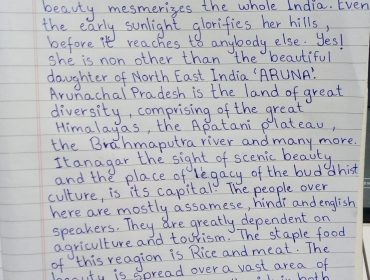 beauty mesmerizes the whole India. Even
the early sunlight glorifies her hills,
before it reaches to anybody else. Yes!
she is non other than the beautiful
daughter of North East India 'ARUNA'.
Arunachal Pradesh is the land of great
diversity, comprising of the great
Himalayas, the Apatani plateau,
the Brahmaputra river and many more.
Itanagar the sight of scenic beauty
and the place of legacy of the buddhist
culture, is its capital. The people over
here are mostly assamese, hindi and english
speakers. They are greatly dependent on
agriculture and tourism. The staple food
of this reagion is Rice and meat. The
beauty is spread over a vast area of